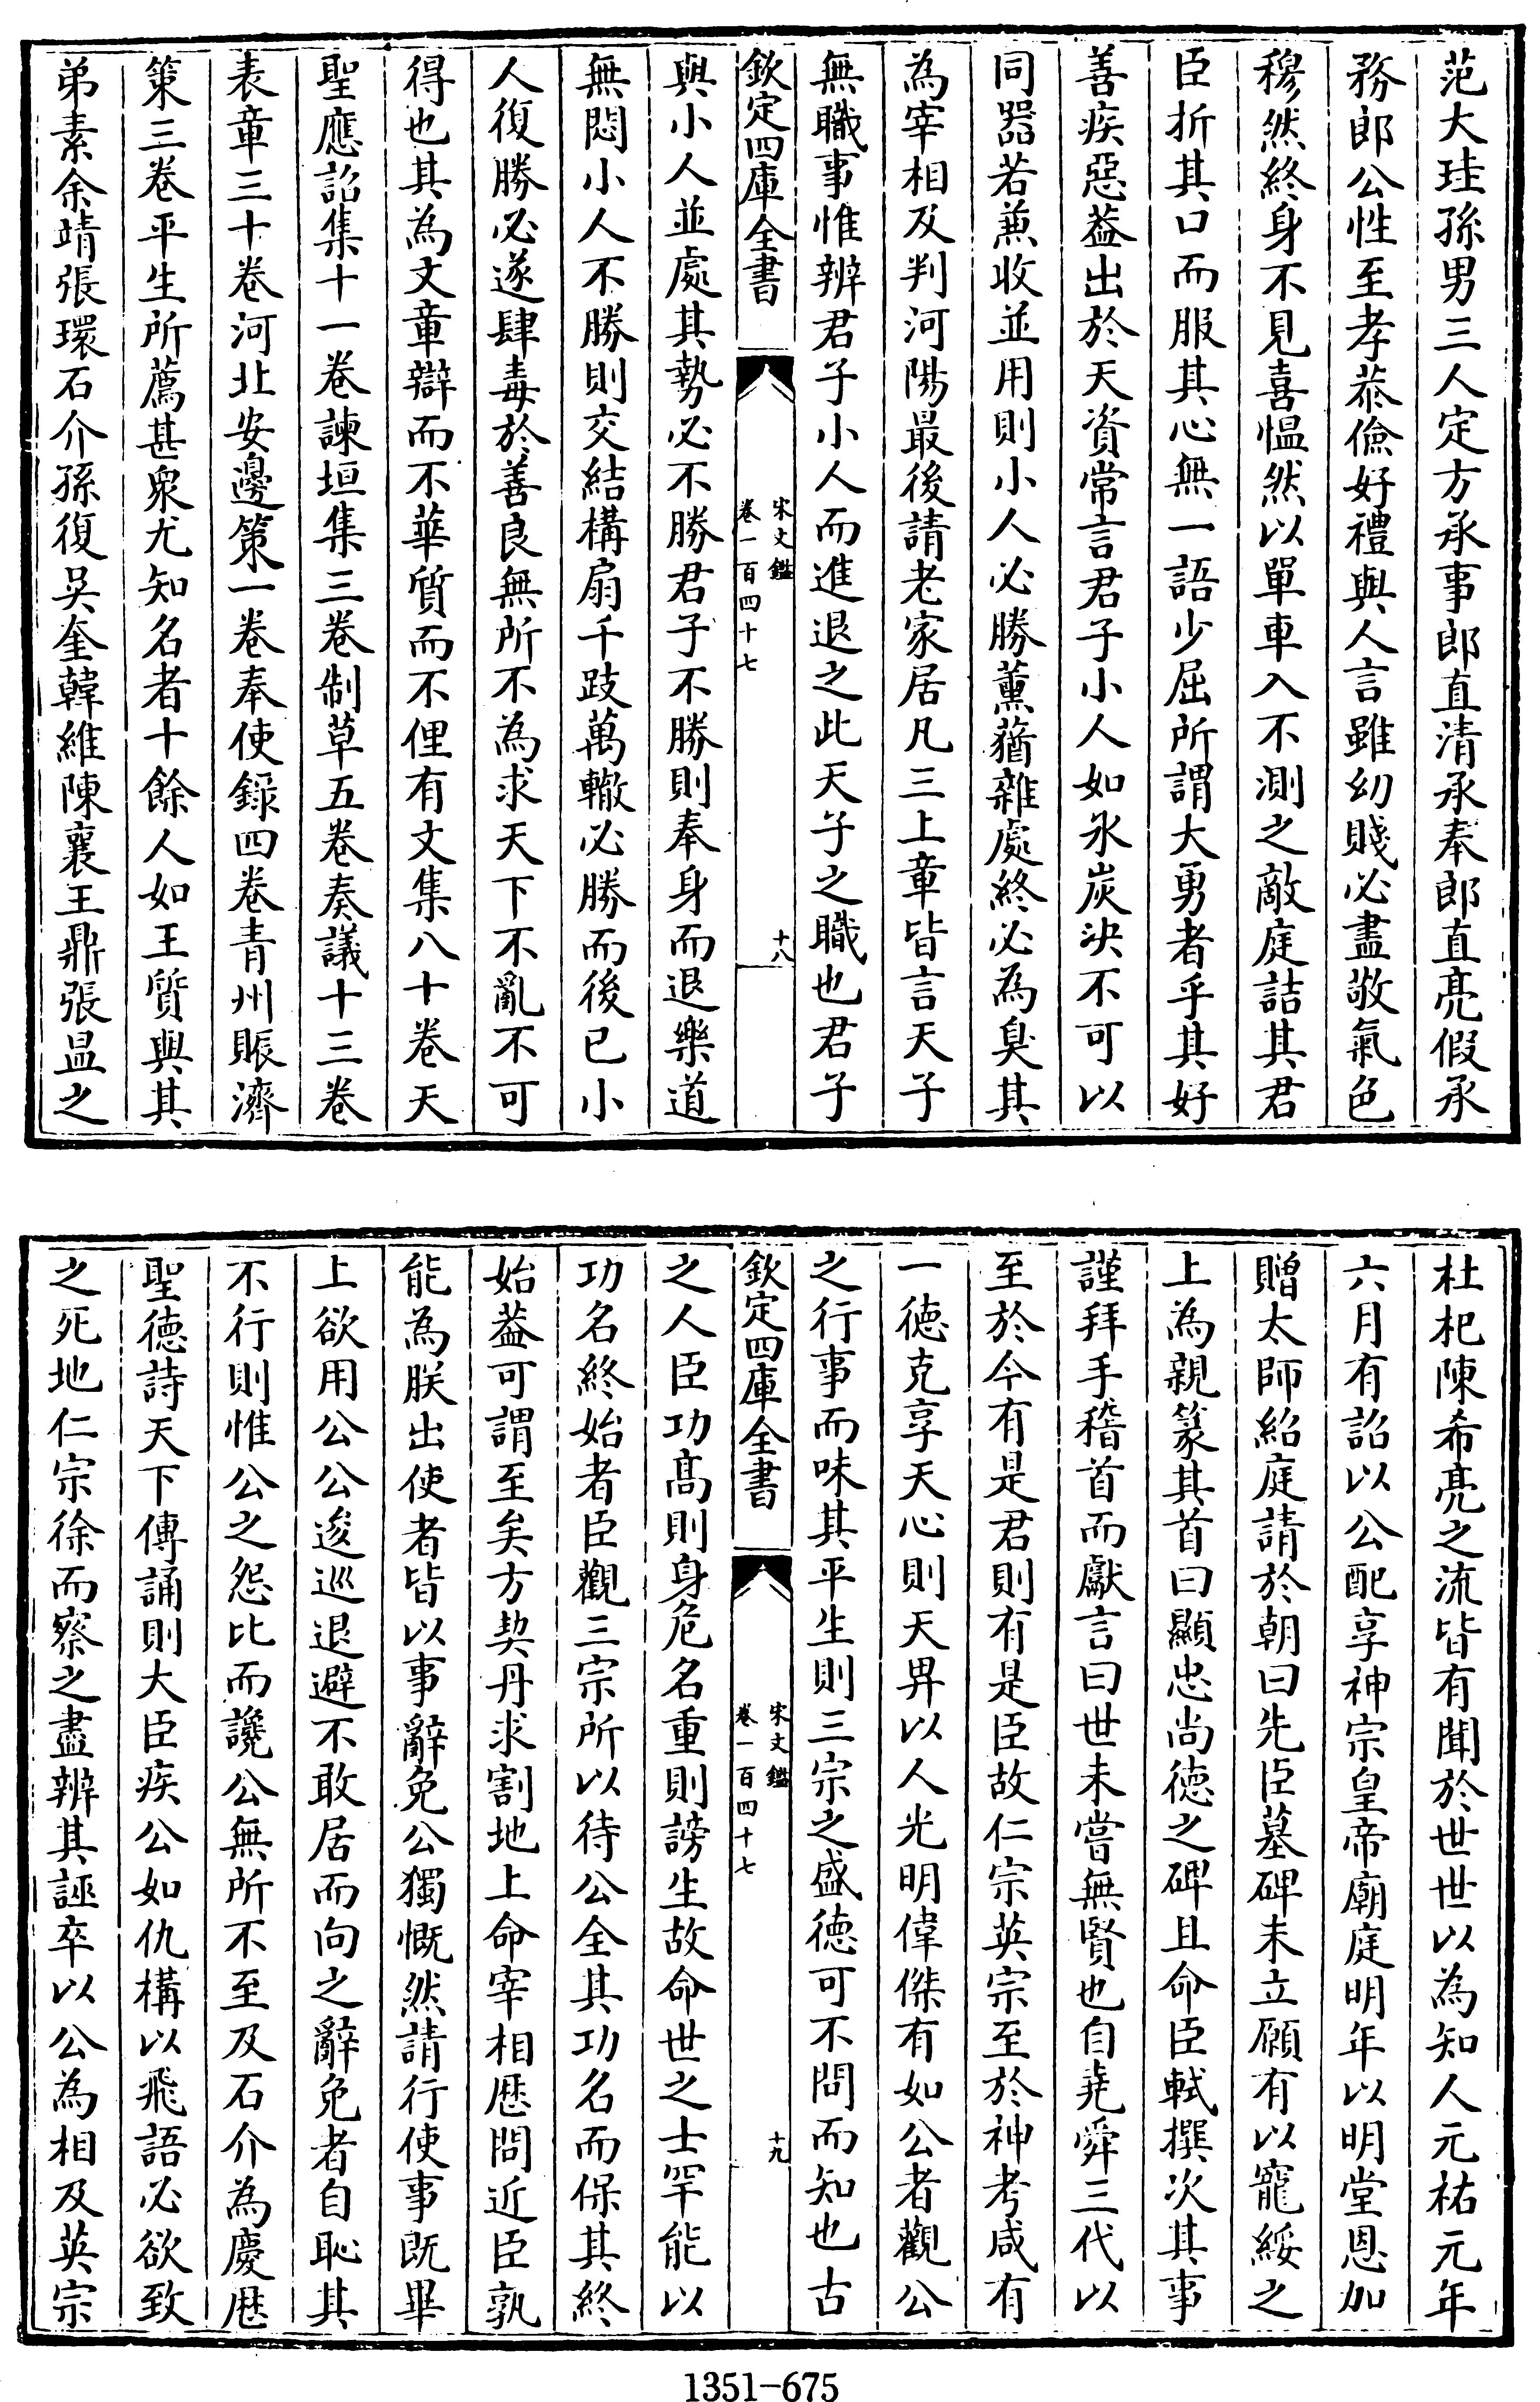 范大珪孫男三人定方承事郎直清承奉郎直亮假承
務郎公性至孝恭儉好禮與人言雖幼賤必盡敬氣色
穆然終身不見喜愠然以單車入不測之敵庭詰其君
臣折其口而服其心無一語少屈所謂大勇者乎其好
善疾惡葢出於天資常言君子小人如氷炭決不可以
同器若兼收並用則小人必勝薰蕕雜處終必為臭其
為宰相及判河陽最後請老家居凡三上章皆言天子
無職事惟辨君子小人而進退之此天子之職也君子
欽定四庫全書
宋文鑑
卷一百四十七
十八
與小人並處其勢必不勝君子不勝則奉身而退樂道
無悶小人不勝則交結構扇千跂萬轍必勝而後已小
人復勝必遂肆毒於善良無所不為求天下不亂不可
得也其為文章辯而不華質而不俚有文集八十卷天
聖應詔集十一卷諫垣集三卷制草五卷奏議十三卷
表章三十卷河北安邊策一卷奉使録四卷青州賑濟
策三卷平生所薦甚衆尤知名者十餘人如王質與其
弟素余靖張環石介孫復吳奎韓維陳襄王鼎張昷之
杜杞陳希亮之流皆有聞於世世以為知人元祐元年
六月有詔以公配享神宗皇帝廟庭明年以明堂恩加
贈太師紹庭請於朝曰先臣墓碑未立願有以寵綏之
上為親篆其首曰顯忠尚徳之碑且命臣軾撰次其事
謹拜手稽首而獻言曰世未嘗無賢也自堯舜三代以
至於今有是君則有是臣故仁宗英宗至於神考咸有
一徳克享天心則天畀以人光明偉傑有如公者觀公
之行事而味其平生則三宗之盛徳可不問而知也古
欽定四庫全書
宋文鑑
卷一百四十七
十九
之人臣功髙則身危名重則謗生故命世之士罕能以
功名終始者臣觀三宗所以待公全其功名而保其終
始葢可謂至矣方契丹求割地上命宰相歴問近臣孰
能為朕出使者皆以事辭免公獨慨然請行使事既畢
上欲用公公逡巡退避不敢居而向之辭免者自恥其
不行則惟公之怨比而讒公無所不至及石介為慶歴
聖徳詩天下傳誦則大臣疾公如仇構以飛語必欲致
之死地仁宗徐而察之盡辨其誣卒以公為相及英宗
1351-675